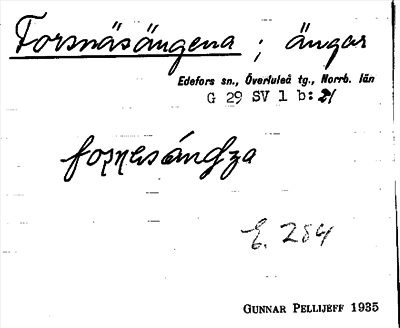 Forsnäsängena ; ängar
Edefors sn., Överluleå tg., Norrb. län
G 29 SV 1 b: 21
E. 284
GUNNAR PELLIJEFF 1935